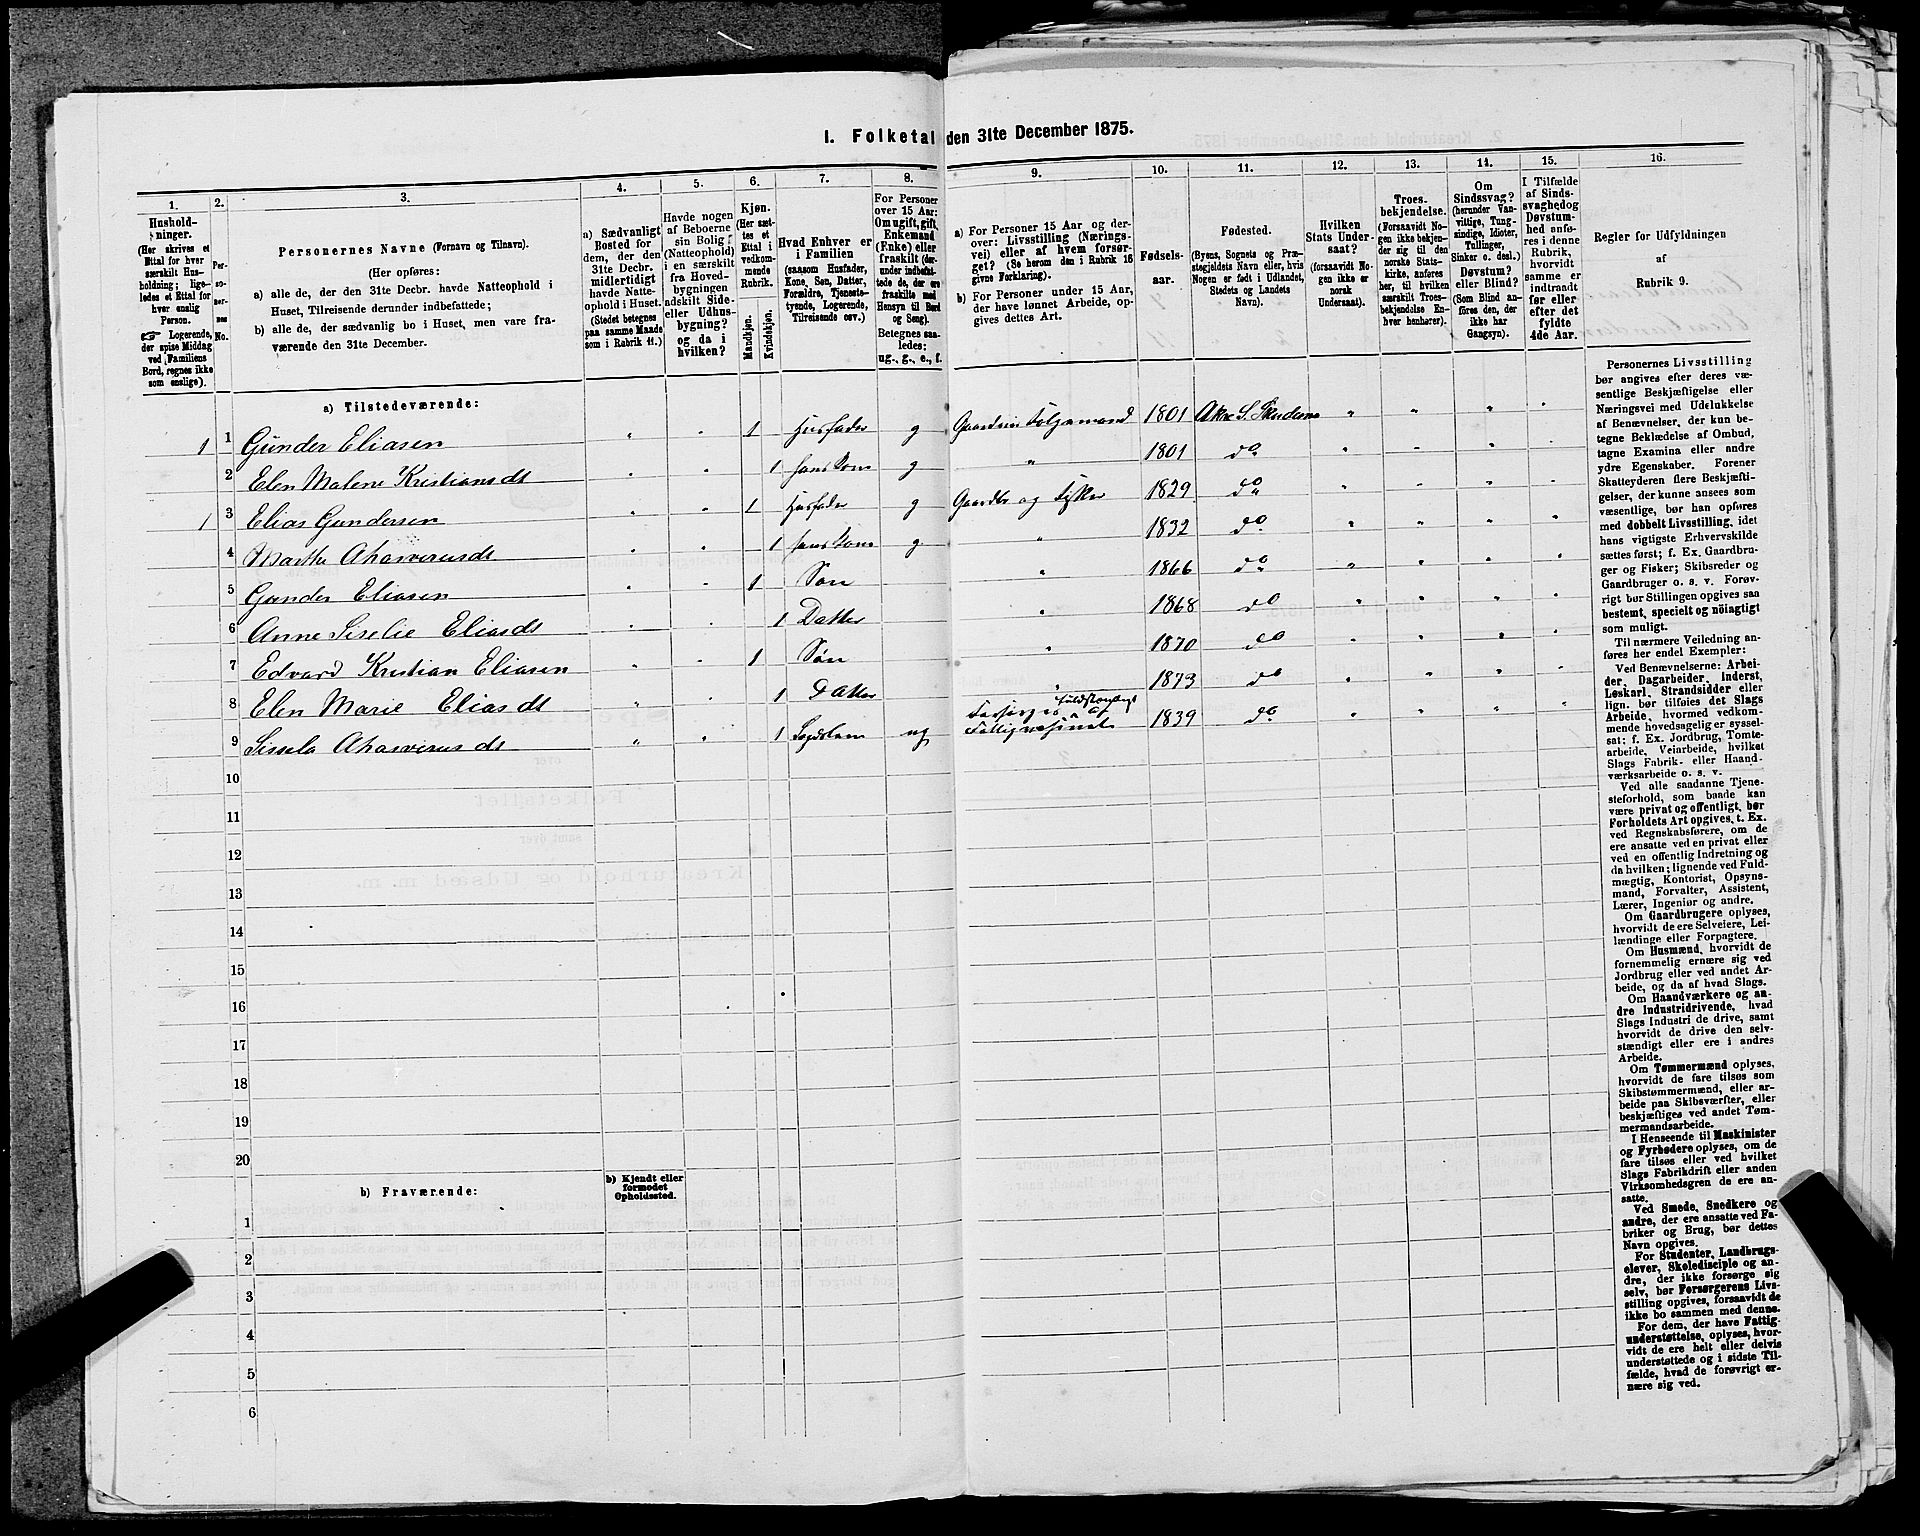 1. Folketal den 31te December 1875.
1.
Hushold-
ninger.
(Her skrives et
Ettal for hver
særskilt Hus-
holdning; lige-
ledes et Ettal for
hver enslig
Person.
☞ Logerende,
der spise Middag
ved Familiens
Bord, regnes ikke
som enslige).
2.
Per-
so-
ner-
nes
No.
3.
Personernes Navne (Fornavn og Tilnavn).
(Her opføres:
a) alle de, der den 31te Decbr. havde Natteophold i
Huset, Tilreisende derunder indbefattede;
b) alle de, der sædvanlig bo i Huset, men vare fra-
værende den 31te December.
4.
a) Sædvanligt
Bosted for
dem, der den
31te Decbr.
midlertidigt
havde Natte-
ophold i Huset.
(Stedet betegnes
paa samme Maade
som i Rubrik 11.)
5.
Havde nogen
af Beboerne
sin Bolig
(Natteophold)
i en særskilt
fra Hoved-
bygningen
adskilt Side-
eller Udhus-
bygning?
og da i
hvilken?
6.
Kjøn.
(Her sæt-
tes et
Ettal i
vedkom-
mende
Rubrik.
Mandkjøn.
Kvindekjøn.
7.
Hvad Enhver er
i Familien
(saasom Husfader,
Kone, Søn, Datter,
Forældre, Tjeneste-
tyende, Logerende,
Tilreisende osv.)
8.
For Personer
over 15 Aar:
Om ugift, gift,
Enkemand
(Enke) eller
fraskilt (der-
under indbefat-
tede de, der ere
fraskilte med
Hensyn til Bord
og Seng).
Betegnes saa-
ledes:
ug., g., e., f.
9.
a) For Personer 15 Aar og der-
over: Livsstilling (Nærings-
vei) eller af hvem forsør-
get? (Se herom den i Rubrik 16
givne Forklaring).
b) For Personer under 15 Aar,
der have lønnet Arbeide, op-
gives dettes Art.
10.
Fødsels-
aar.
11.
Fødested.
(Byens, Sognets og Præ-
stegjeldets Navn eller, hvis
Nogen er født i Udlandet,
Stedets og Landets
Navn).
12.
Hvilken
Stats Under-
saat?
(forsaavidt No-
gen ikke er
norsk
Undersaat).
13.
Troes-
bekjendelse.
(Forsaavidt No-
gen ikke bekjen-
der sig til den
norske Stats-
kirke, anføres
her, til hvilken
særskilt Troes-
bekjendelse En-
hver henhører).
14.
Om
Sindssvag?
(herunder Van-
vittige, Tung-
sindige, Idioter,
Tullinger,
Sinker o. desl.)
Døvstum?
eller Blind?
(Som Blind an-
føres den, der
ikke har
Gangsyn).
15.
I Tilfælde
af Sinds-
svaghed og
Døvstum-
hed anfø-
res i denne
Rubrik,
hvorvidt
samme er
indtraadt
før eller
efter det
fyldte
4de Aar.
16.
Regler for Udfyldningen
af
Rubrik 9.
a) Tilstedeværende:
1 1 Gunder Eliasen " " 1 Husfader g 1801 Akre S. " " " "
2 Elen Malene Kristiansdt " " 1 hans Kone g " 1801 do " " " "
1 3 Elias Gundersen " " 1 Husfader g Gaardbr og Fisker 1829 do " " " "
4 Marthe Ahasverusdt " " 1 hans Kone g " 1832 do " " " "
5 Gunder Eliasen " " 1 Søn " 1866 do " " " "
6 Anne Siselie Eliasdt " " 1 Datter " 1868 do " " " "
7 Edvard Kristian Eliasen " " 1 Søn " 1870 do " " " "
8 Elen Marie Eliasdt " " 1 Datter " 1873 do " " " "
9 Sissela Ahasverusdt " " 1 ug 1839 do " " " "
10
11
12
13
14
15
16
17
18
19
20
b) Fraværende:
b) Kjendt eller
formodet
Opholdssted.
1
2
3
4
5
6
Personernes Livsstilling
bør angives efter deres væ-
sentlige Beskjæftigelse eller
Næringsvei med Udelukkelse
af Benævnelser, der kun be-
tegne Beklædelse af Ombud,
tagne Examina eller andre
ydre Egenskaber. Forener
Skatteyderen flere Beskjæfti-
gelser, der kunne ansees som
væsentlige, bør han opføres
med dobbelt Livsstilling, idet
hans vigtigste Erhvervskilde
sættes først; f. Ex. Gaardbru-
ger og Fisker; Skibsreder og
Gaardbruger o. s. v. Forøv-
rigt bør Stillingen opgives saa
bestemt, specielt og nöiagtigt
som muligt.
Til nærmere Veiledning an-
føres her endel Exempler:
Ved Benævnelserne: Arbei-
der, Dagarbeider, Inderst,
Løskarl, Strandsidder eller
lign. bør tilføies det Slags
Arbeide, hvormed vedkom-
mende hovedsagelig er syssel-
sat; f. Ex. Jordbrug, Tomte-
arbeide, Veiarbeide, hvilket
Slags Fabrik- eller Haand-
værksarbeide o. s. v.
Ved alle saadanne Tjene-
steforhold, som baade kan
være privat og offentligt, bør
Forholdets Art opgives, t. Ex.
ved Regnskabsførere, om de
ere ansatte ved en privat eller
ved en offentlig Indretning og
da hvilken; lignende ved Fuld-
mægtig, Kontorist, Opsyns-
mand, Forvalter, Assistent,
Lærer, Ingeniør og andre.
Om Gaardbrugere oplyses,
hvorvidt de ere Selveiere, Lei-
lændinge eller Forpagtere.
Om Husmænd, hvorvidt de
fornemmelig ernære sig ved
Jordbrug eller ved andet Ar-
beide, og da af hvad Slags.
Om Haandværkere og an-
dre Industridrivende, hvad
Slags Industri de drive, samt
hvorvidt de drive den selv-
stændigt eller ere i andres
Arbeide.
Om Tømmermænd oplyses,
hvorvidt de fare tilsøs som
Skibstømmermænd, eller ar-
beide paa Skibsværfter, eller
beskjæftiges ved andet Tøm-
mermandsarbeide.
I Henseende til Maskinister
og Fyrbødere oplyses, om de
fare tilsøs eller ved hvilket
Slags Fabrikdrift eller anden
Virksomhedsgren de ere an-
satte.
Ved Smede, Snedkere og
andre, der ere ansatte ved Fa-
briker og Brug, bør dettes
Navn opgives.
For Studenter, Landbrugs-
elever, Skoledisciple og an-
dre, der ikke forsørge sig
selv, bør Forsørgerens Livs-
stilling opgives, forsaavidt de
ikke bo sammen med denne.
For dem, der have Fattig-
understøttelse, oplyses, hvor-
vidt de ere helt eller delvis
understøttede og i sidste Til-
fælde, hvad de forøvrigt er-
nære sig ved.